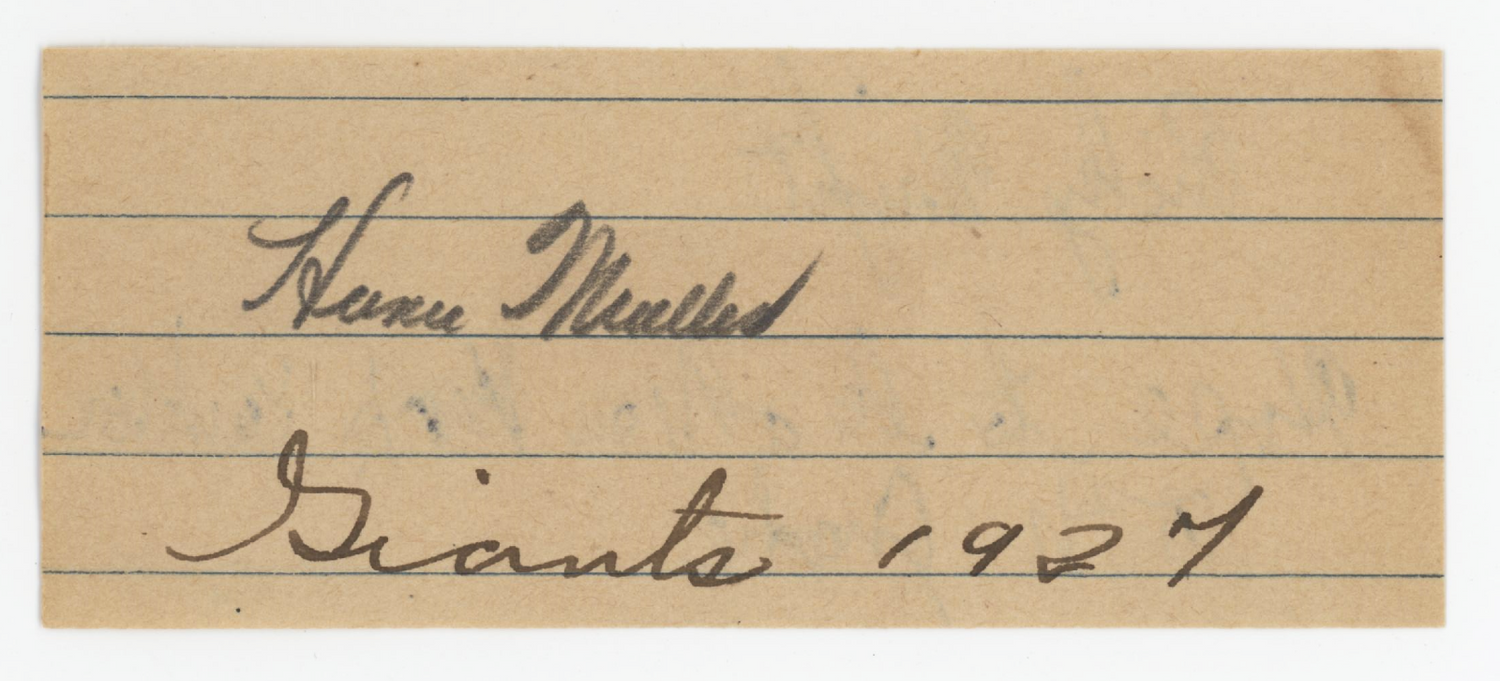 Heinie Mueller
Giants 1927